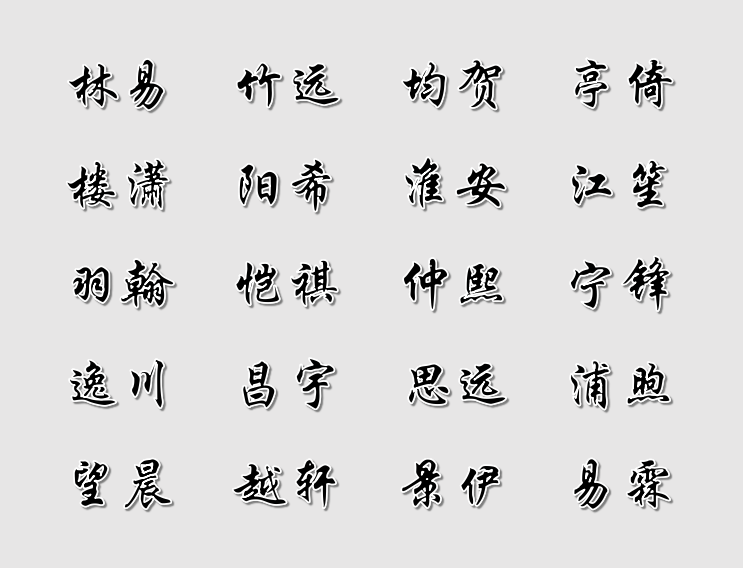 林易 竹远 均贺 亭倚
楼潇 阳希 淮安 江笙
羽翰 恺祺 仲熙 宁锋
逸川 昌宇 思远 浦煦
望晨 越轩 景伊 易霖